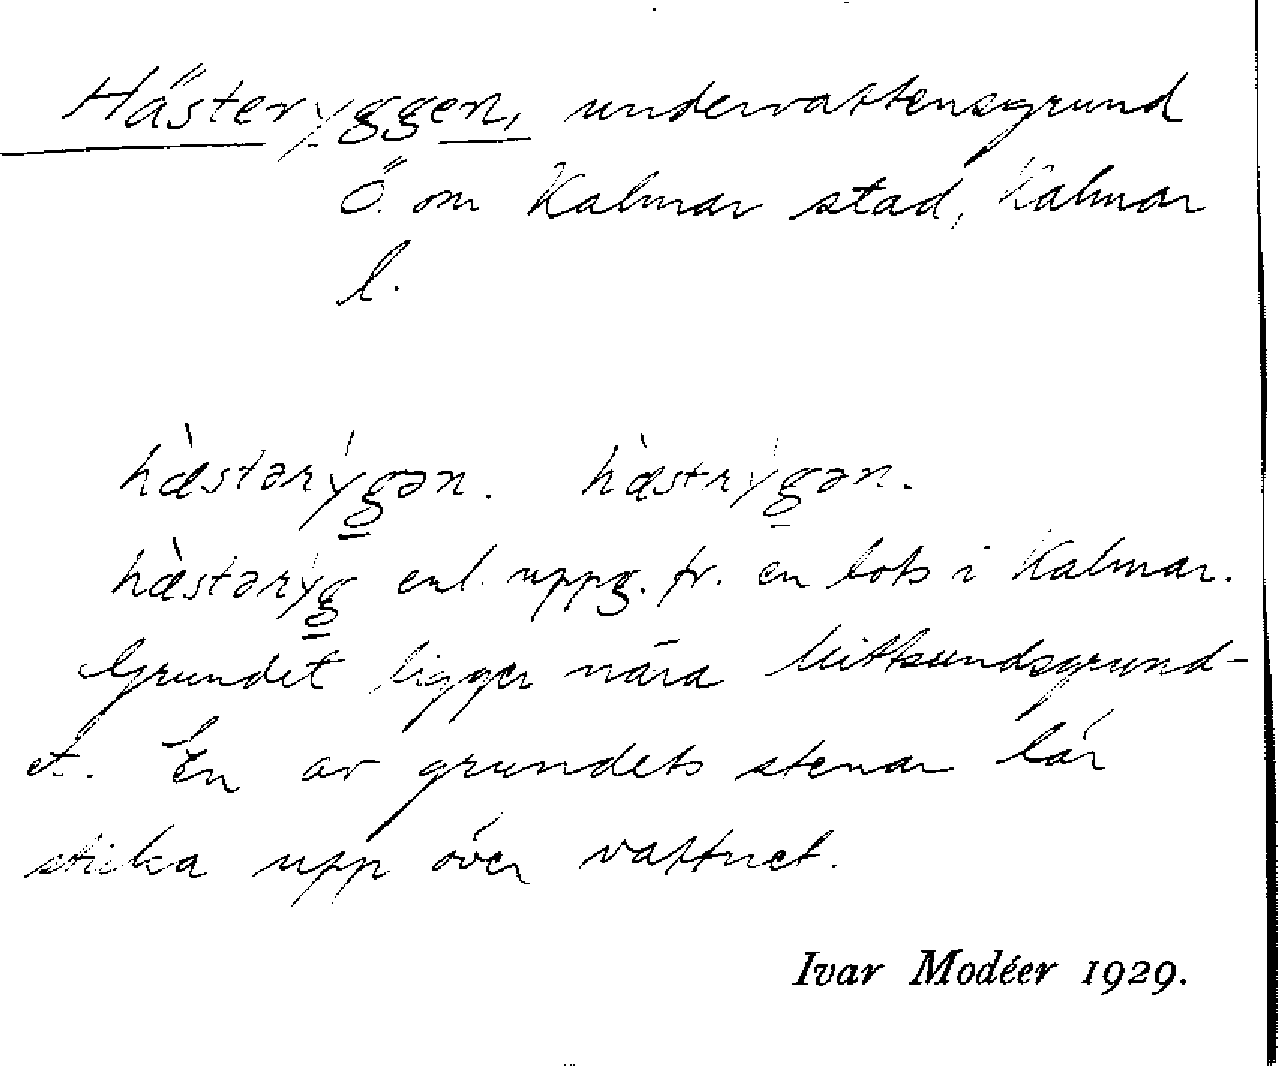 Hästeryggen, undervattensgrund
Ö. om Kalmar stad, Kalmar
l.
hæ̀stərýgən. hæ̀strýgən.
hæ̀stərýg enl. uppg. fr. en lots i Kalmar.
Grundet ligger nära Mittsundsgrund-
et. En av grundets stenar lär
sticka upp över vattnet.
Ivar Modéer 1929.